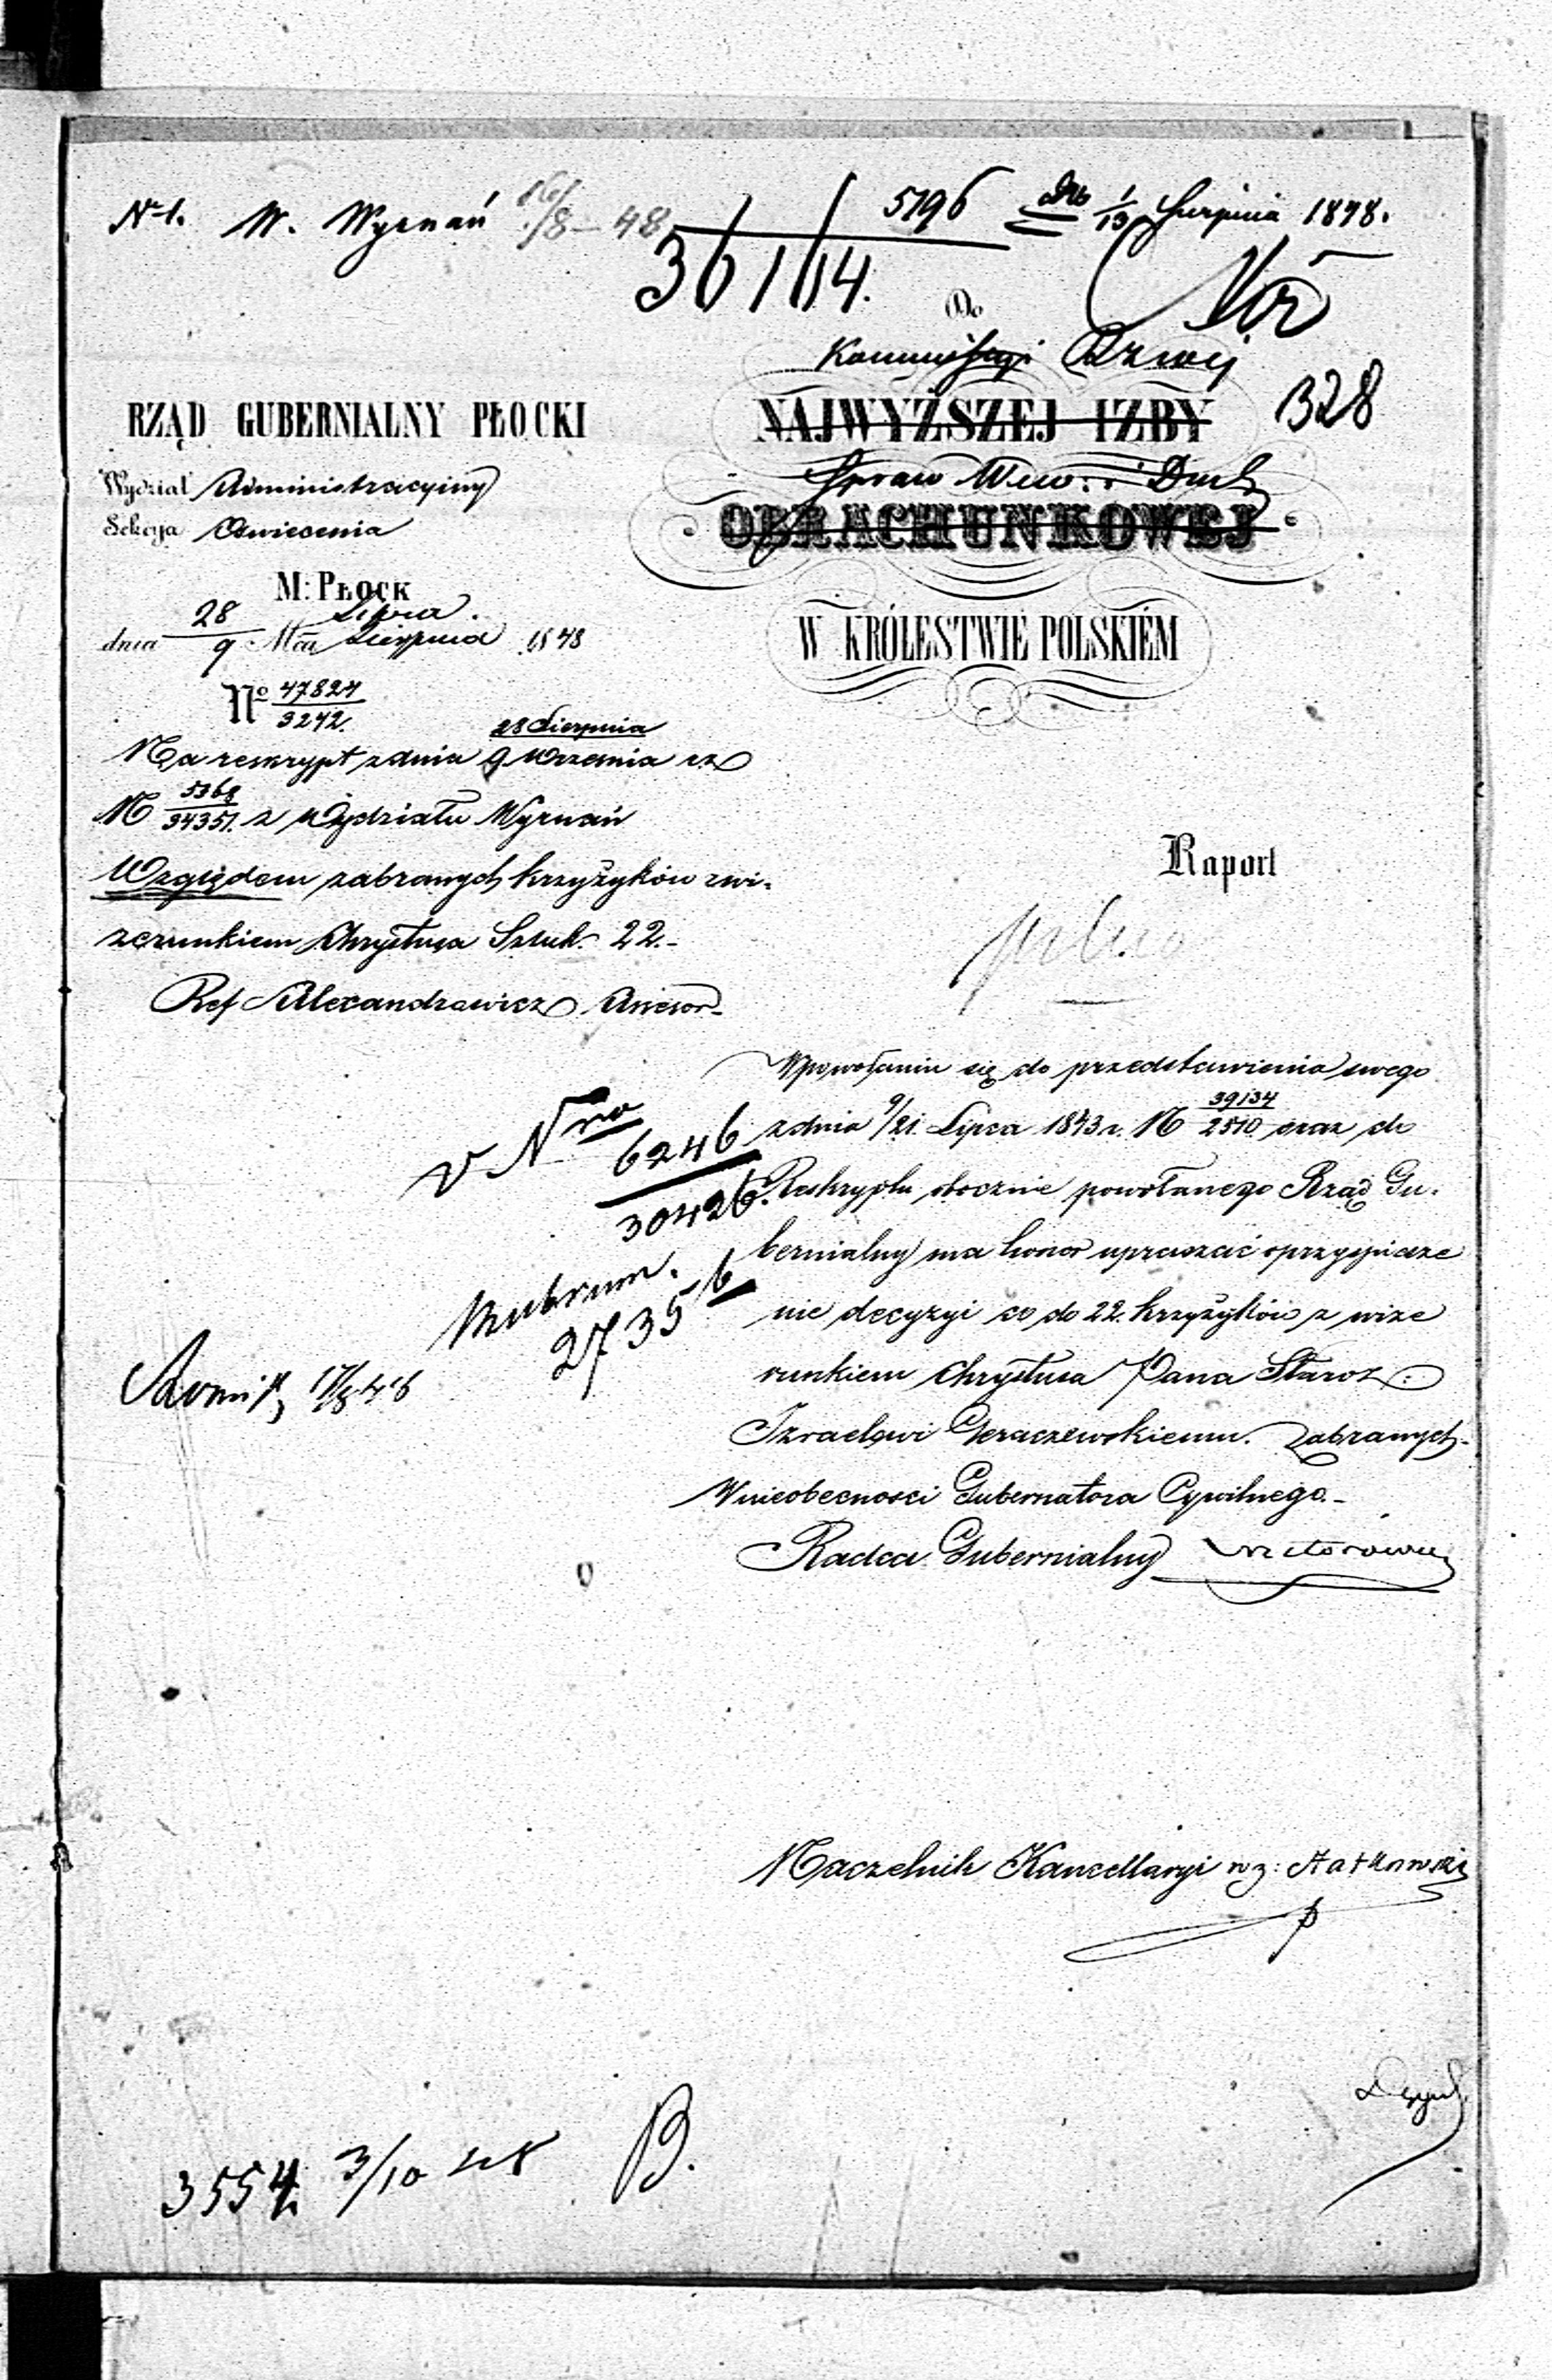 N 1. W. Wyznań /8 – 48
5196 dto 1/13 Sierpnia 1848.
36114.
Do
Kommissyi Rzwej
NAJWYŻSZEJ IZBY
328
Spraw Wew: i Duch
OBRACHUNKOWEJ
W KRÓLESTWIE POLSKIÉM
RZĄD GUBERNIALNY PŁOCKI
Wydział Administracyiny
Sekcya Oświecenia
M: PŁOCK
dnia 28/9 Mca Lipca/Sierpnia 1848
No 47824/3242.
Na reskrypt z dnia 28 Sierpnia/9 Września
N 5368/34351. z Wydziału Wyznań
Względem zabranych krzyżyków z wi-
zerunkiem Chrystusa Sztuk 22.-
Ref Alexandrowicz Assesor
Raport
W powołaniu się do przedstawienia swego
z dnia 9/21. Lipca 1843 r. N 39134/2510 oraz do
Reskryptu obocznie powołanego Rząd Gu-
bernialny ma honor upraszać o przyspiesze
nie decyzyi co do 22. krzyżyków z wize
runkiem Chrystusa Pana Staroz:
Izraelowi Geraczewskiemu. Zabranych-
W nieobecności Gubernatora Cywilnego.-
Radca Gubernialny
v Nro
6246
30426.
Rubrum.
2735 b
Naczelnik Kancellaryi w z:
3554 3/10
B.